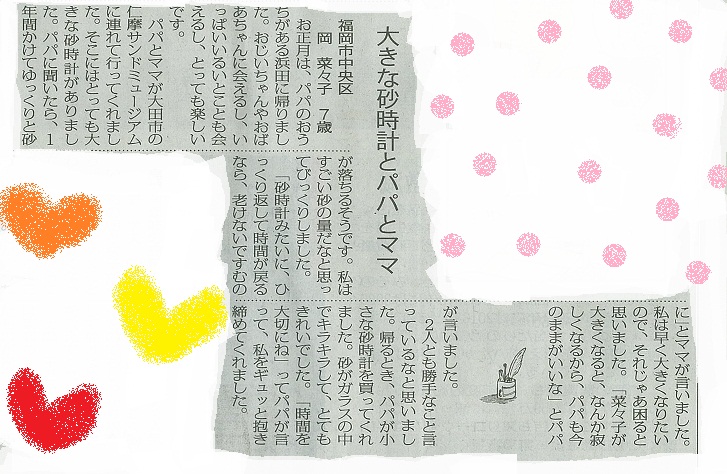 大きな砂時計とパパとママ
福岡市中央区
岡　菜々子　７歳
お正月は、パパのおう
ちがある浜田に帰りまし
た。おじいちゃんやおば
あちゃんに会えるし、い
っぱいいるいとことも会
えるし、とっても楽しい
です。
パパとママが大田市の
仁摩サンドミュージアム
に連れて行ってくれまし
た。そこにはとっても大
きな砂時計がありまし
た。パパに聞いたら、１
年間かけてゆっくりと砂
が落ちるそうです。私は
すごい砂の量だなと思っ
てびっくりしました。
「砂時計みたいに、ひ
っくり返して時間が戻る
なら、老けないですむの
に」とママが言いました。
私は早く大きくなりたい
ので、それじゃあ困ると
思いました。「菜々子が
大きくなると、なんか寂
しくなるから、パパも今
のままがいいな」とパパ
が言いました。
２人とも勝手なこと言
っているなと思いまし
た。帰るとき、パパが小
さな砂時計を買ってくれ
ました。砂がガラスの中
でキラキラして、とても
きれいでした。「時間を
大切にね」ってパパが言
って、私をギュッと抱き
締めてくれました。